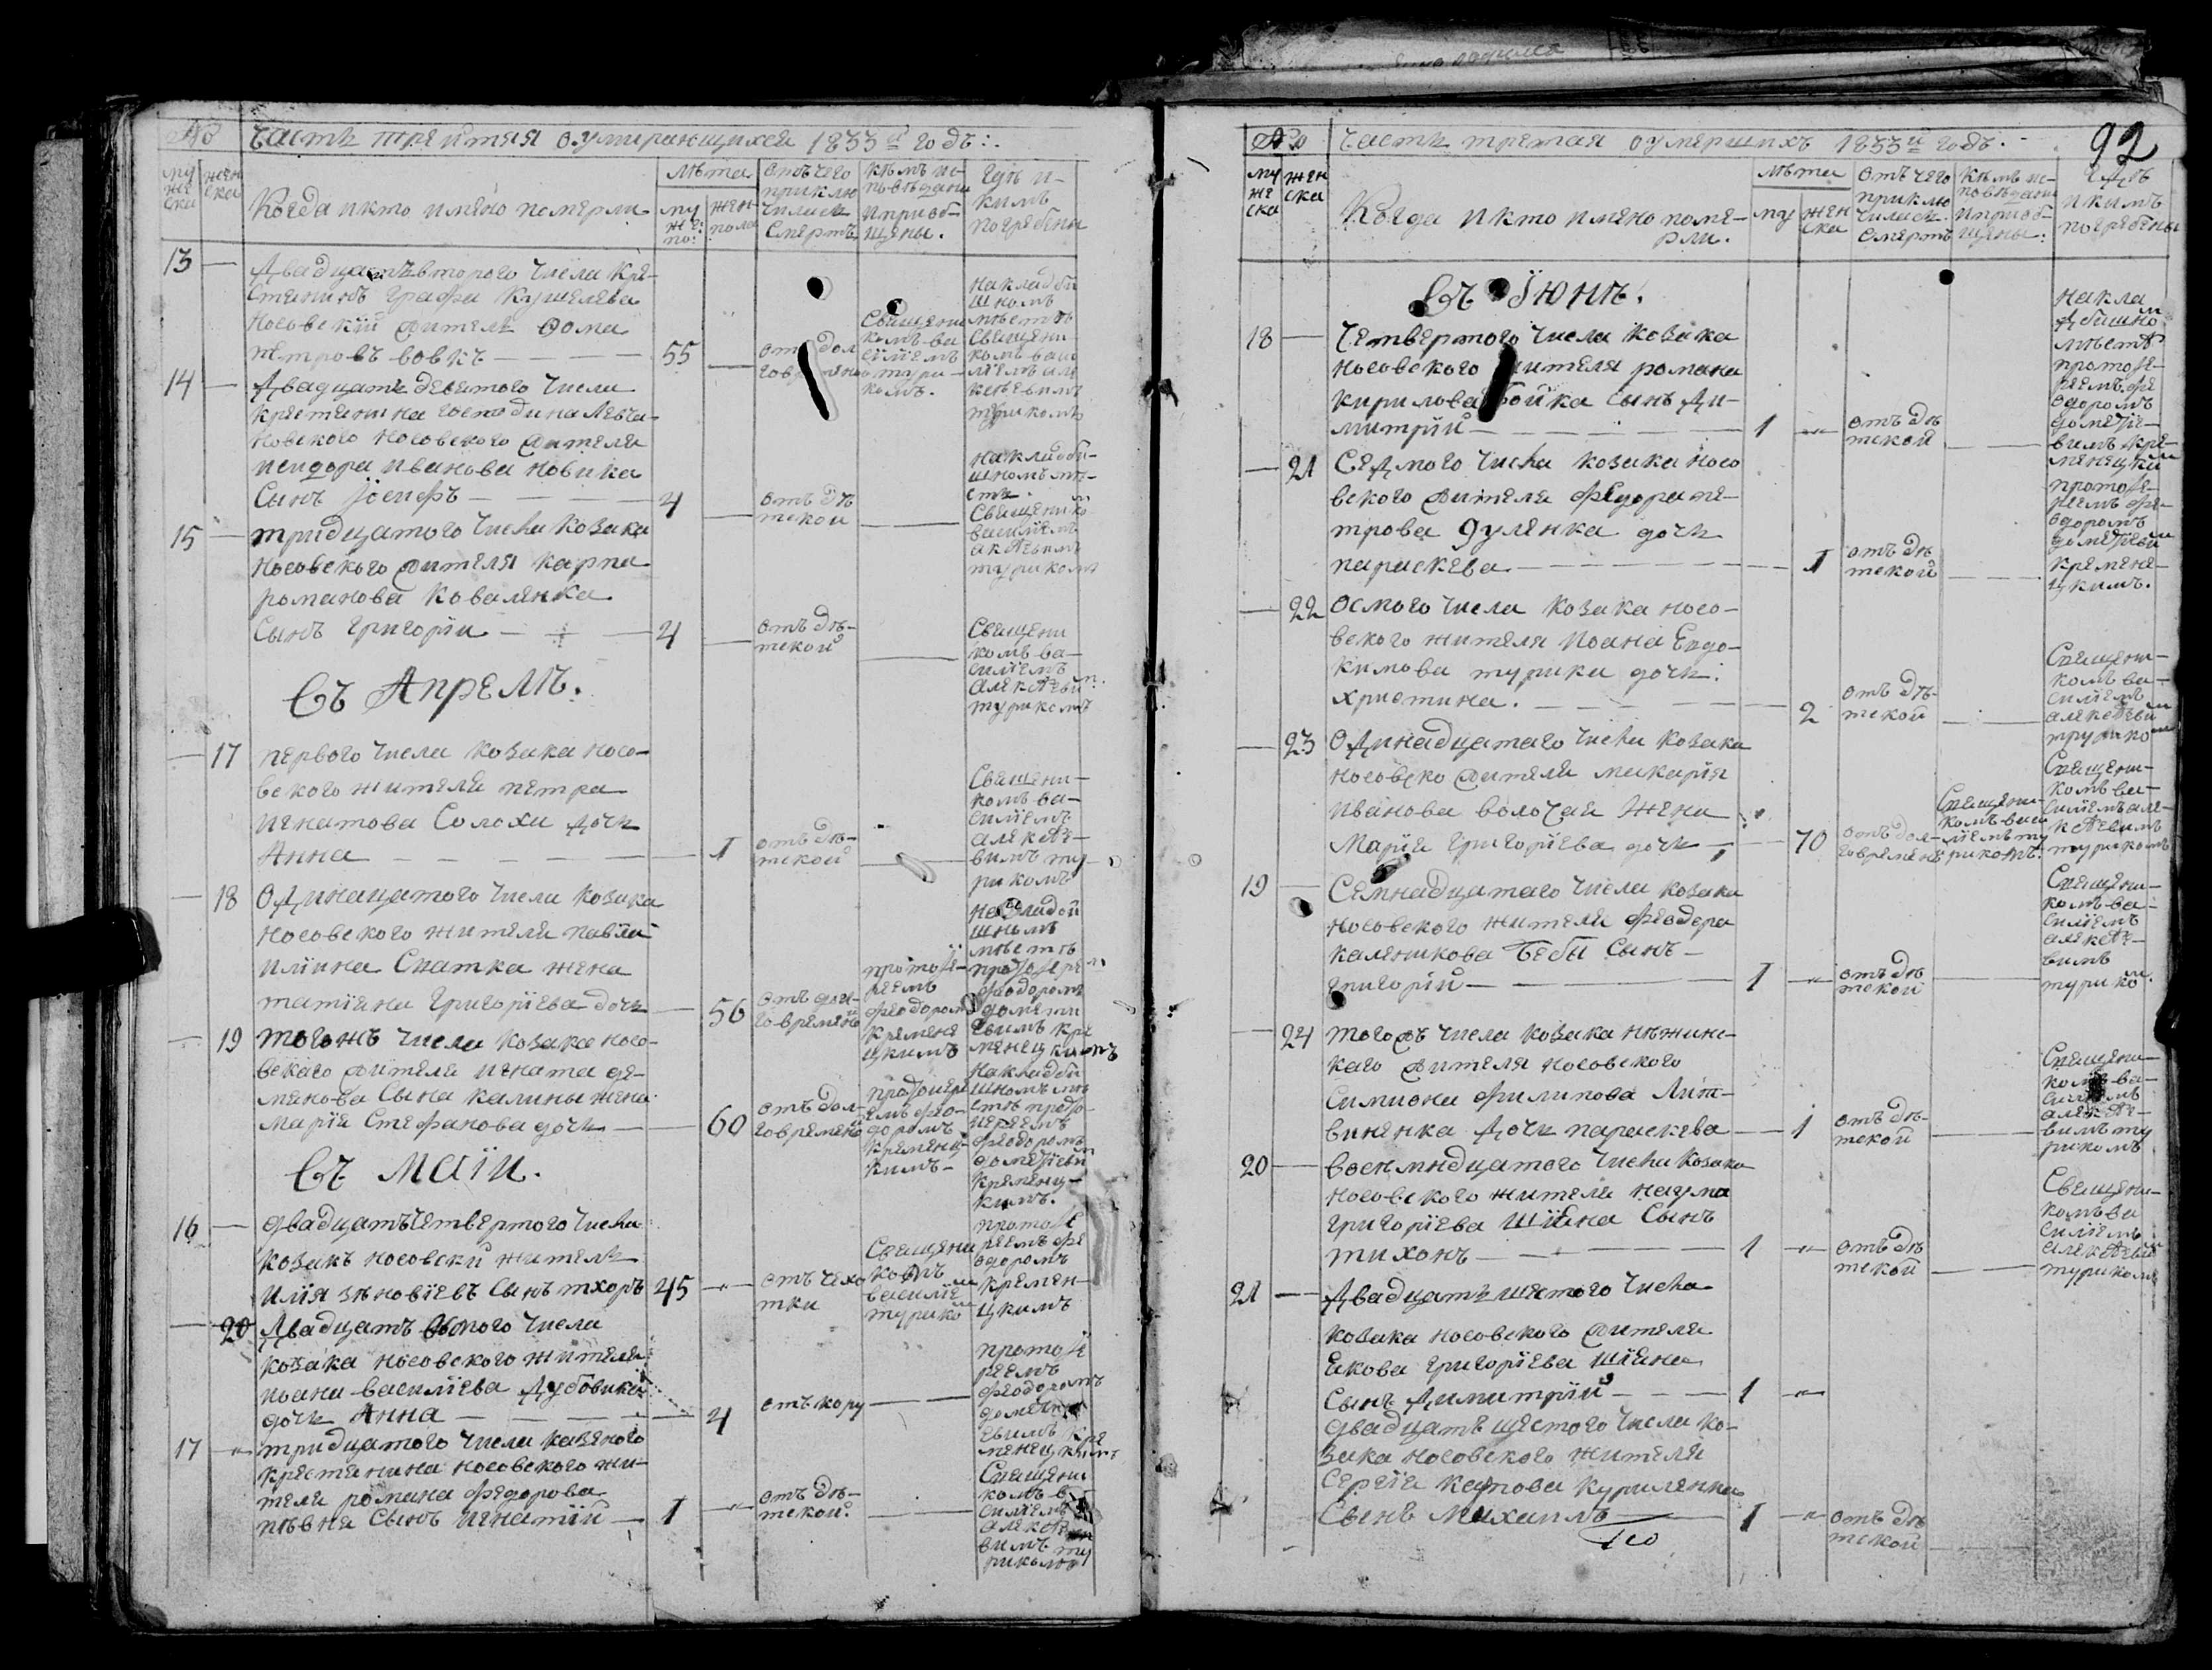 № Часть третия оумирающихся 1833й годъ:
му же ска
жен ска
Когда икто имено померли
лѣта
му же: по:
жен пола
отъ чего приклю чилася смерть
кѣмъ ис повѣдани и приоб щены.
гдѣ и кимъ погребены
13
Двадцать второго числа кре-
стянинъ графа Кушелева
Носовскій житель Фома
петровъ вовкъ 55
священи комъ ва силіемъ тури комъ.
на кладби щномъ мѣстѣ священи комъ васи ліемъ але ксѣевимъ туриком
14
Двадцать девятого числа
крестянина господина
новского носовского жителя
исидора иванова новика
Сынъ Іосифъ 4
отъ дѣ тской
на кладби щномъ мѣ стѣ. священико василіемъ алксѣевимъ туриком
15
тридцатого числа козака
носовского жителя карпа
романова коваленка
Сынъ григоріи 4
отъ дѣ- тской
Священи комъ ва- силіемъ алексѣеви м: турикомъ
Въ Апрелѣ.
17
первого числа козака носо-
вского жителя петра
игнатова Солохи дочь
Анна 1
отъ дѣ- тской
Священи- комъ ва- силіемъ алексѣе- вимъ ту рикомъ
18
Одинацатого числа козака
носовского жителя павла
иліина Снатка жена
татіана григоріева дочь 56
отъ дол- говремен
протоіе- реемъ феодоромъ кремене цкимъ
на кладби щномъ мѣстѣ протоіере м феодоромъ домети евимъ кре менецкимъ
19
тогожъ числа козака носо-
вскаго жителя игната де-
мянова Сына калины жена
марія Стефанова дочь 60
отъ дол- говремен
протоіере емъ фео- доромъ кременец кимъ
на кладби щномъ мѣ стѣ прото- иереемъ феодоромъ дометіеви м кременец- кимъ.
Въ маіи.
16
двадцать четвертого числа
козакъ носовскій житель
илія зѣновіевъ Сынъ тхоръ 45
отъ чехо тки
Священи комъ василіе м турико м
протоіе реемъ фе одоромъ кремен- цкимъ
20
Двадцать осмого числа
козака носовского жителя
иоана василіева Дубовика
дочь Анна 4
отъ кору
протоіе реемъ феодоромъ дометі евимъ кре менецким:
17
тридцатого числа казеного
крестянина носовского жи-
теля романа федорова
пѣвня Сынъ игнатій 1
отъ дѣ- тской.
Священи комъ ва силіемъ алексѣе вимъ ту рикомъ
№ Часть третая оумершихъ 1833й годъ.
92
му же ска
жен ска
Когда икто имено поме-
рли.
лѣта
му
жен ска
отъ чего приклю чилася смерть
кѣмъ ис повѣдани и приоб- щены:
гдѣ икимъ погребены
Въ Іюнѣ.
18
Четвертого числа козака
носовского жителя романа
кирилова бойка Сынъ Ди-
митрій 1
отъ дѣ тской
на кла дбищно м мѣстѣ протоіе- реемъ фе одоромъ дометіе- вимъ кре- менецки м
21
Седмого числа козака носо
вского жителя Федора пе-
трова дуленка дочь
параскева 1
отъ дѣ тской
протоіе- реемъ фе- одоромъ дометіеви м кремене- цкимъ.
22
осмого числа козака носо-
вского жителя иоана Евдо-
кимова турики дочь:
христина. 2
отъ дѣ- тской
Священи- комъ ва- силіемъ алексѣеви м турико м
23
Одинадцатаго числа козака
носовско жителя макарія
иванова волочая жена
Марія григоріева дочь 70
отъ дол- говремен
Священи- комъ васи ліемъ ту рикомъ.
Священи- комъ ва- силіемъ але- ксѣевимъ турикомъ
19
Семнадцатаго числа козака
носовского жителя Феодора
каленикова Бебы Сынъ-
григорій 1
отъ дѣ тской
Священи- комъ ва- силіемъ алексѣе- вимъ турико м.
24
тогожъ числа козака нѣжинс-
каго жителя носовского
Симиона филипова Лит-
виненка дочь параскева 1
отъ дѣ- тской
Священи- комъ ва- силіемъ алексѣе- вимъ ту рикомъ
20
восемндцатого числа козака
носовского жителя наума
григоріева шіяна Сынъ
тихонъ 1
отъ дѣ тской
Священи- комъ ва силіемъ алексѣеви м турикомъ
21
Двадцать шятого числа
козака носовского жителя
Якова григоріева шіяна
Сынъ Димитрій 1
двадцать шестого числа ко-
зака носовского жителя
Сергія карпова куриленка
Сынъ Михаилъ 1
отъ дѣ тской